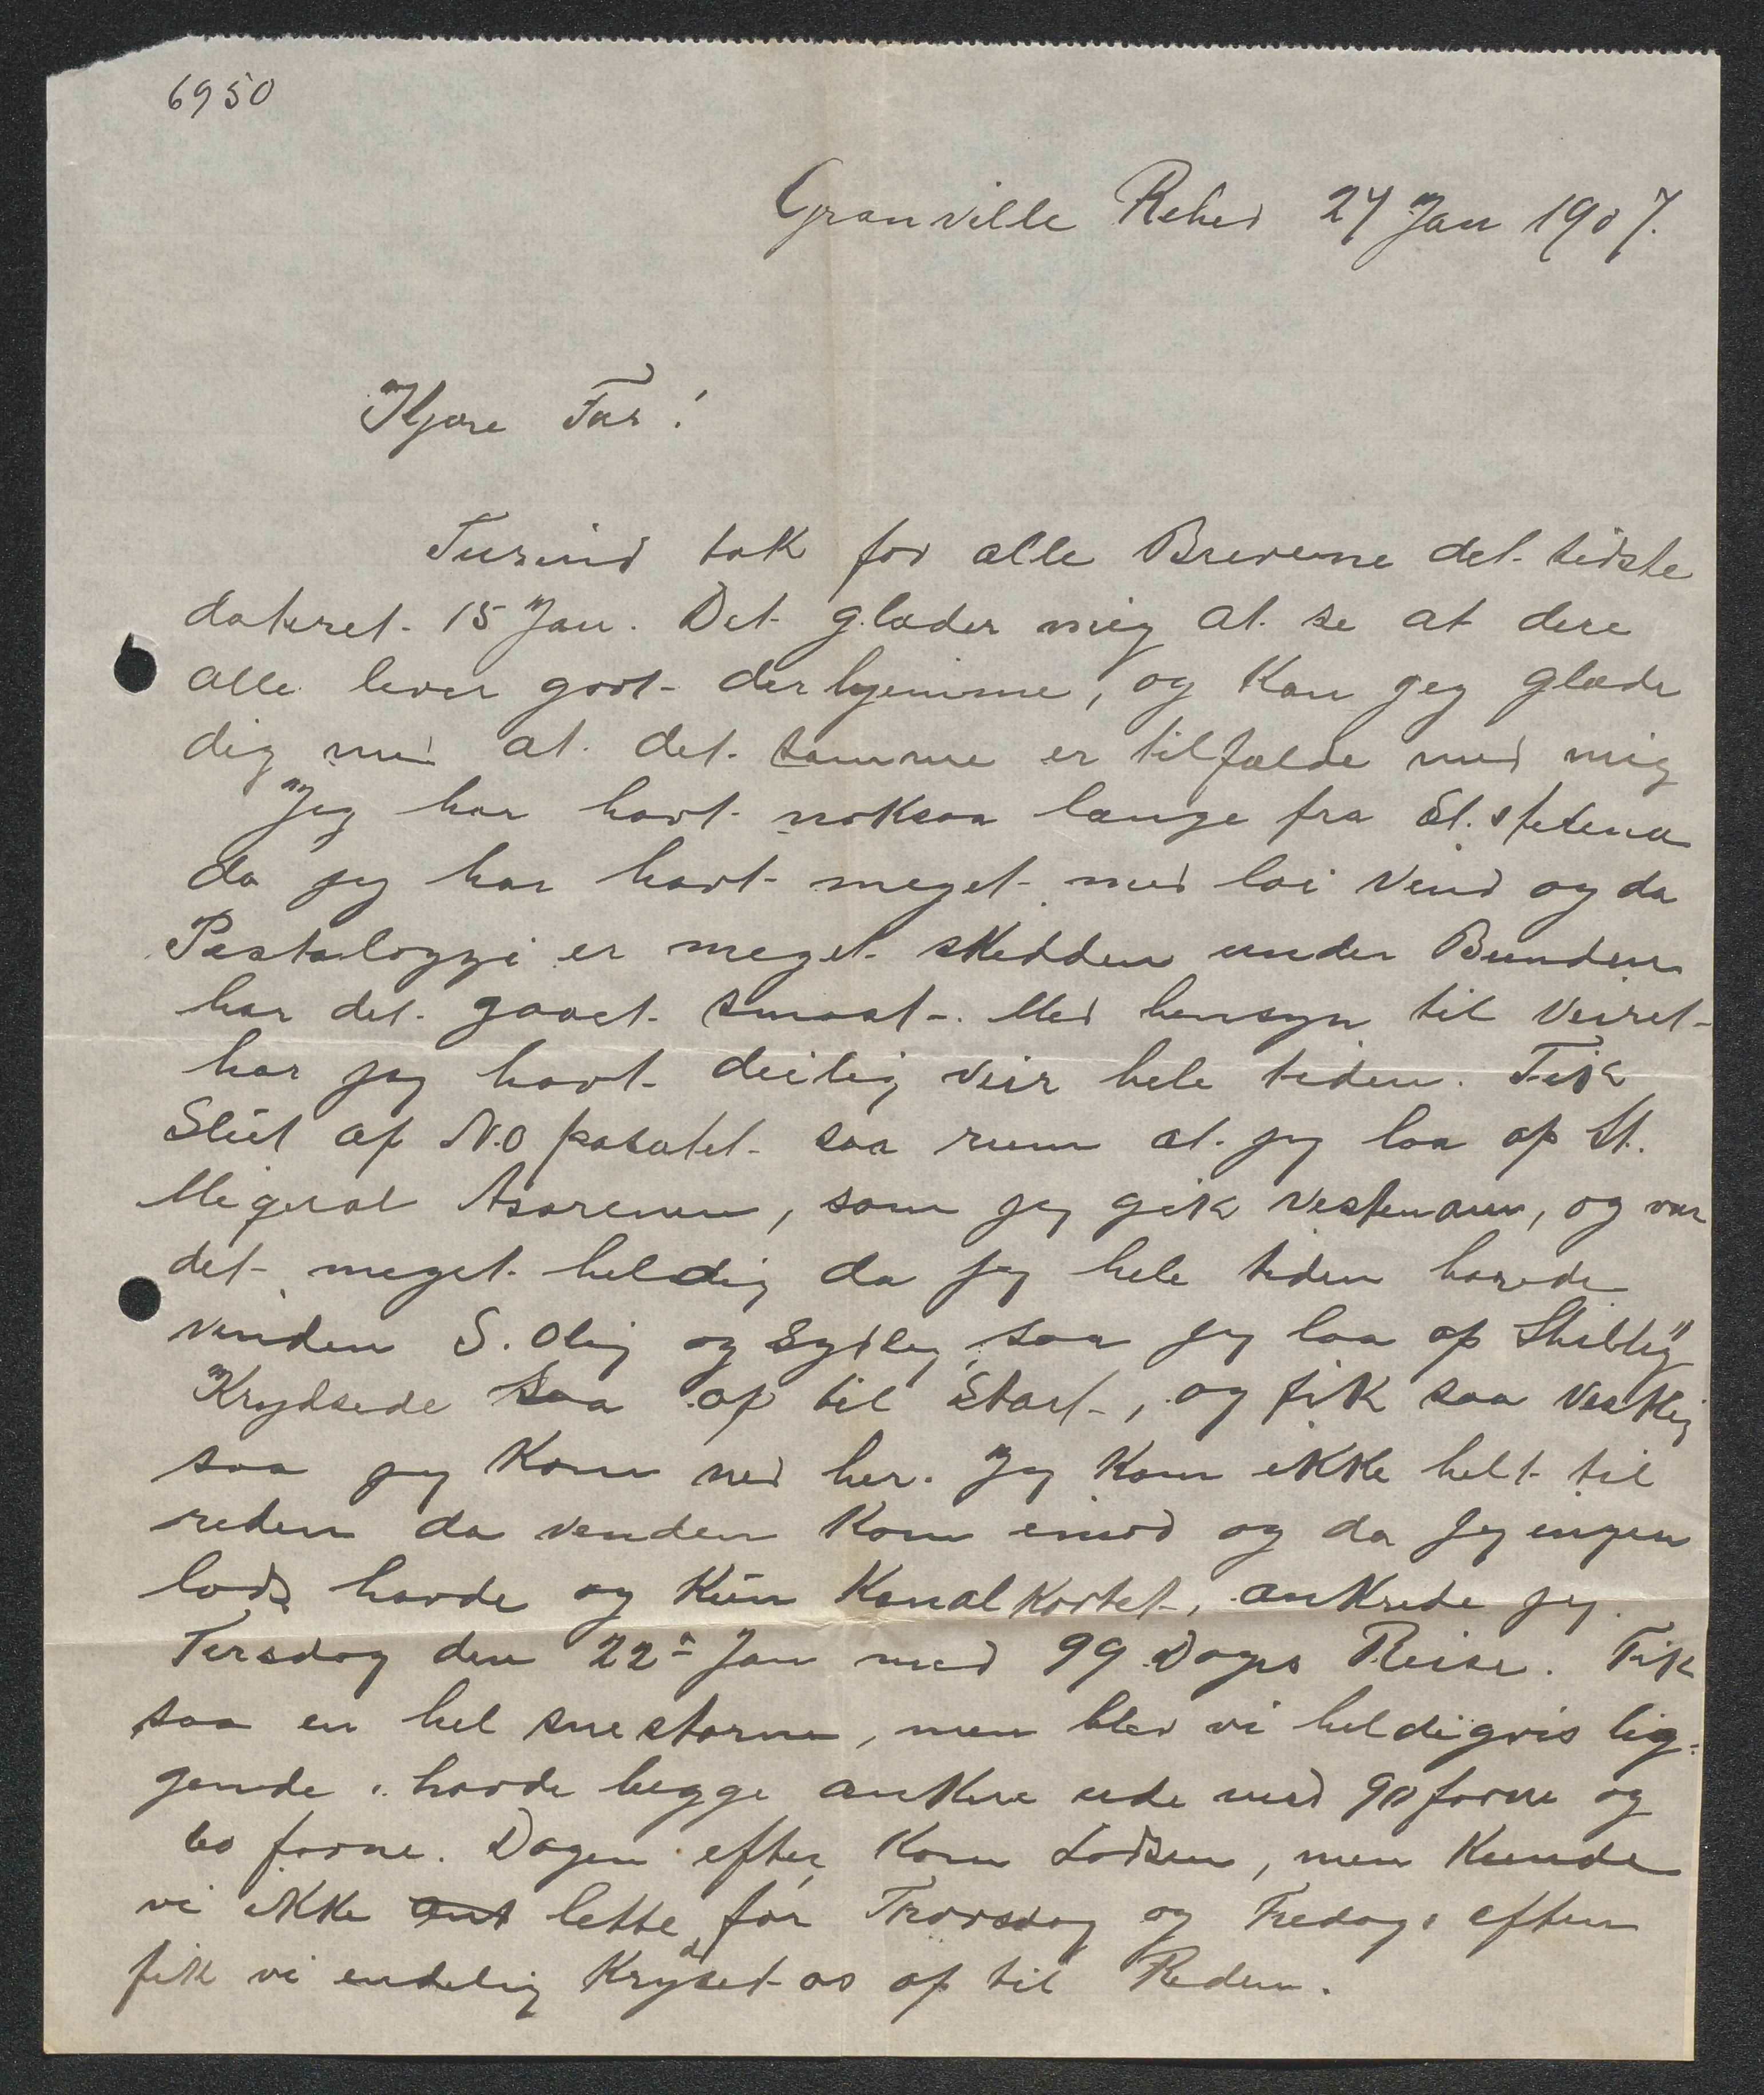 6950
Granville Rehed 27 Jan 1907.
Kjære Far!
Tusind tak for alle Brevene det sidste
dateret 15 Jan. Det glæder mig at se at dere
alle lever godt derhjemme, og Kan jeg glæde
dig med at det samme er tilfælde med mig
Jeg har havt noksaa længe fra St. Helena
da jeg har havt meget med lai Vind og da
Pestalozzi er meget skidden under Bunden
har det gaaet smaat. Med hensyn til Veiret
har jeg havt deilig veir hele tiden. Fik
Slut af N.O pasatet saa rum at jeg laa op St.
Migeral Asorerne, som jeg gik Vestenom, og var
det meget heldig da jeg hele tiden havde
vinden S. Olig og Sydlig, saa jeg laa op
Krydsede saa op til Start, og fik saa Vestlig
saa jeg Kom ned her. Jeg Kom ikke helt til
reden da vinden Kom imod og da jeg ingen
lods havde og Kun Kanalkortet, ankrede jeg
Tirsdag den 22 Jan med 99 Dages Reise. Fik
saa en hel snestorm, men blev vi heldigvis lig-
gende. havde begge ankere ude med 90 favne og
60 favne. Dagen efter Kom Lodsen, men Kunde
vi ikke lette før Thorsdag og Fredags efterm
fik vi endelig Krydset os op til Reden.